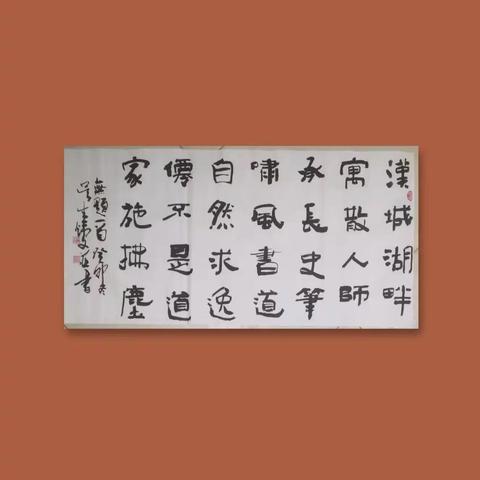 漢城湖畔
寓散人師
承長史筆
嘯風書道
自然求逸
僊不是道
家施拂塵
無題一首癸卯冬
書